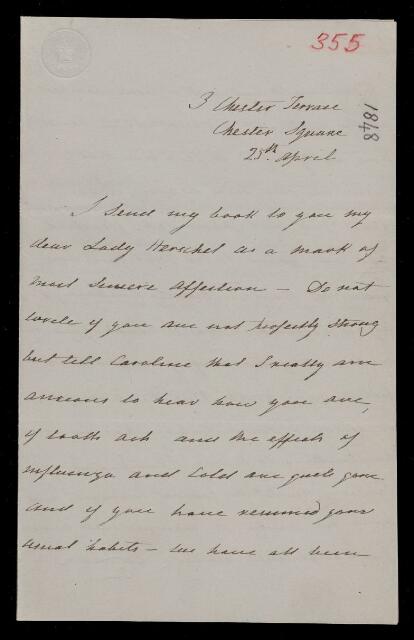 355
3 Chester Terrace
Chester Square
25th April
1848
I send my book to you my
dear Lady Herschel as a mark of
most sincere affection — Do not
write if you are not perfectly strong
but tell Caroline that I really am
anxious to hear how you are,
if tooth ach and the effects of
influenza and cold are quite gone
and if you have resumed your
usual habits — we have all been